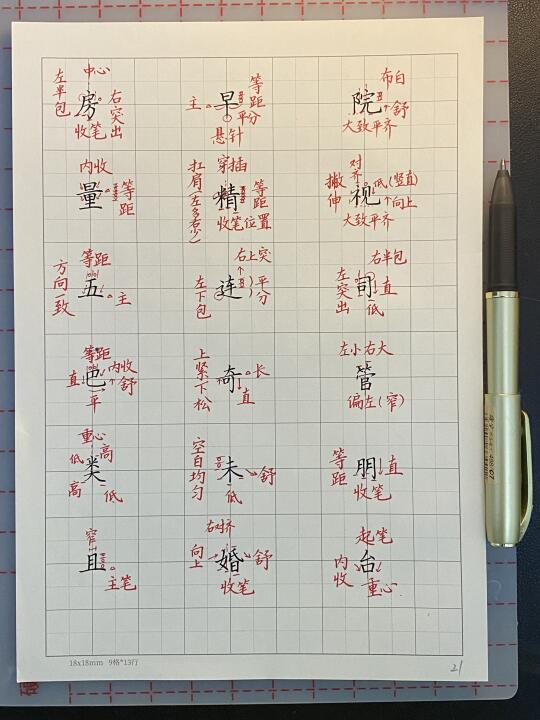 左半包 中心 房 右突出 收笔
主 早 等距 平分 悬针
布白 院 舒 大致平齐
内收 量 等距
扛肩(左多右少) 穿插 精 等距 收笔位置
对齐 撇伸 视 低(竖直) 向上 大致平齐
方向一致 等距 五 主
左下包 右上突 连 平分
右半包 左突出 司 直 低
等距 直 巴 内收 舒 平
上紧下松 奇 长 直
左小右大 管 偏左(窄)
重心 低 高 类 高 低
空白均匀 未 舒 低
等距 朋 直 收笔
窄 且 主笔
右对齐 向上 婚 舒 收笔
起笔 内收 台 重心
18x18mm 9格*13行
21